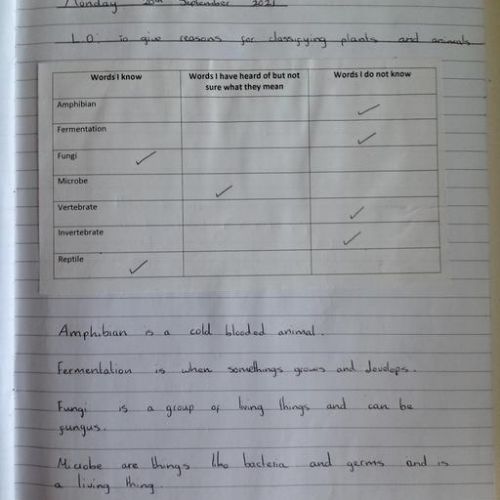 Monday 20th September 2021
L.O: To give reasons for classifying plants and animals
Words I know
Words I have heard of but not
sure what they mean
Words I do not know
Amphibian
Fermentation
Fungi
Microbe
Vertebrate
Invertebrate
Reptile
Amphibian is a cold blooded animal.
Fermentation is when somethings grows and develops.
Fungi is a group of living things and can be
fungus.
Microbe are things like bacteria and germs and is
a living thing.